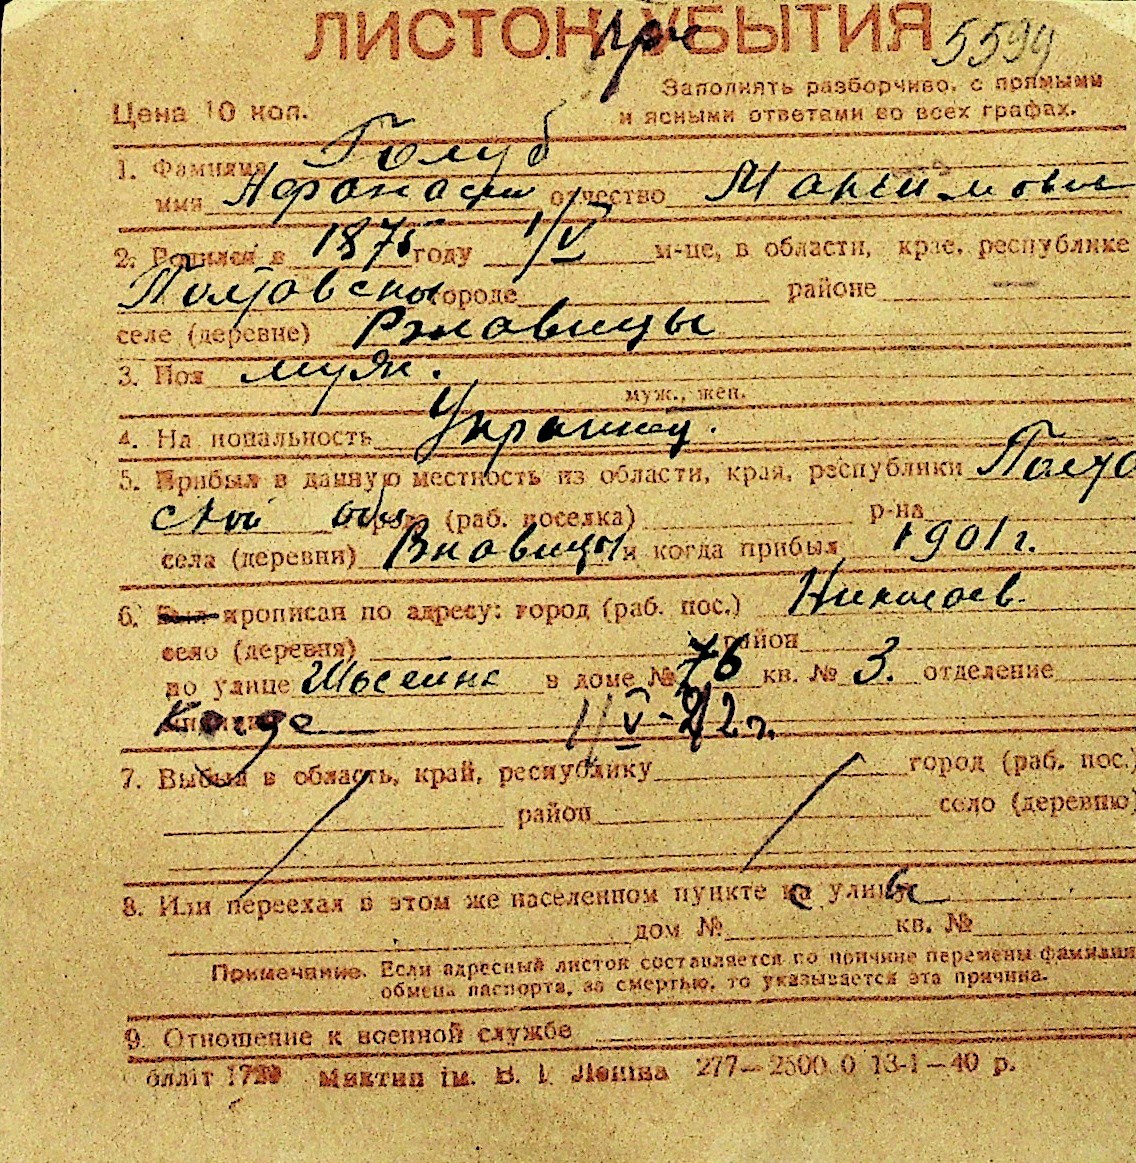 ЛИСТОК УБЫТИЯ 5594
Заполнять разборчиво, с прямыми
Цена 10 коп. и ясными ответами во всех графах.
1. Фамилия Голуб
имя Афанасий отчество Максимович
2. Родился в 1875 году 1/V м-це, в области, крае, республике
Полтавской городе районе —
селе (деревне)
3. Пол муж.
муж., жен.
4. Национальность Украинец.
5. Прибыл в данную местность из области, края, республики Полта
ской обл города (раб. поселка) р-на
села (деревни) и когда прибыл 1901 г.
6. Был прописан по адресу: город (раб. пос.) Николаев.
село (деревня) район
по улице в доме № 76 кв. № 3. отделение
милиции 1/V-42 г.
7. Выбыл в область, край, республику город (раб. пос.)
район село (деревню)
8. Или переехал в этом же населенном пункте на улицу
дом № кв. №
Примечание. Если адресный листок составляется по причине перемены фамилии
обмена паспорта, за смертью, то указывается эта причина.
9. Отношение к военной службе
Миктип ім. В. І. Леніна 277—2500 0 13-1—40 р.